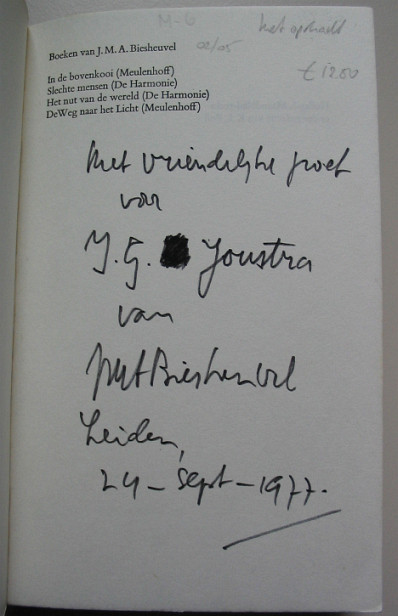 M-6
met opdracht
02/05
€ 12.00
Boeken van J. M. A. Biesheuvel
In de bovenkooi (Meulenhoff)
Slechte mensen (De Harmonie)
Het nut van de wereld (De Harmonie)
DeWeg naar het Licht (Meulenhoff)
Met vriendelijke groet
voor
J. G. Joustra
van
JMABiesheuvel
Leiden,
24 - Sept - 1977.